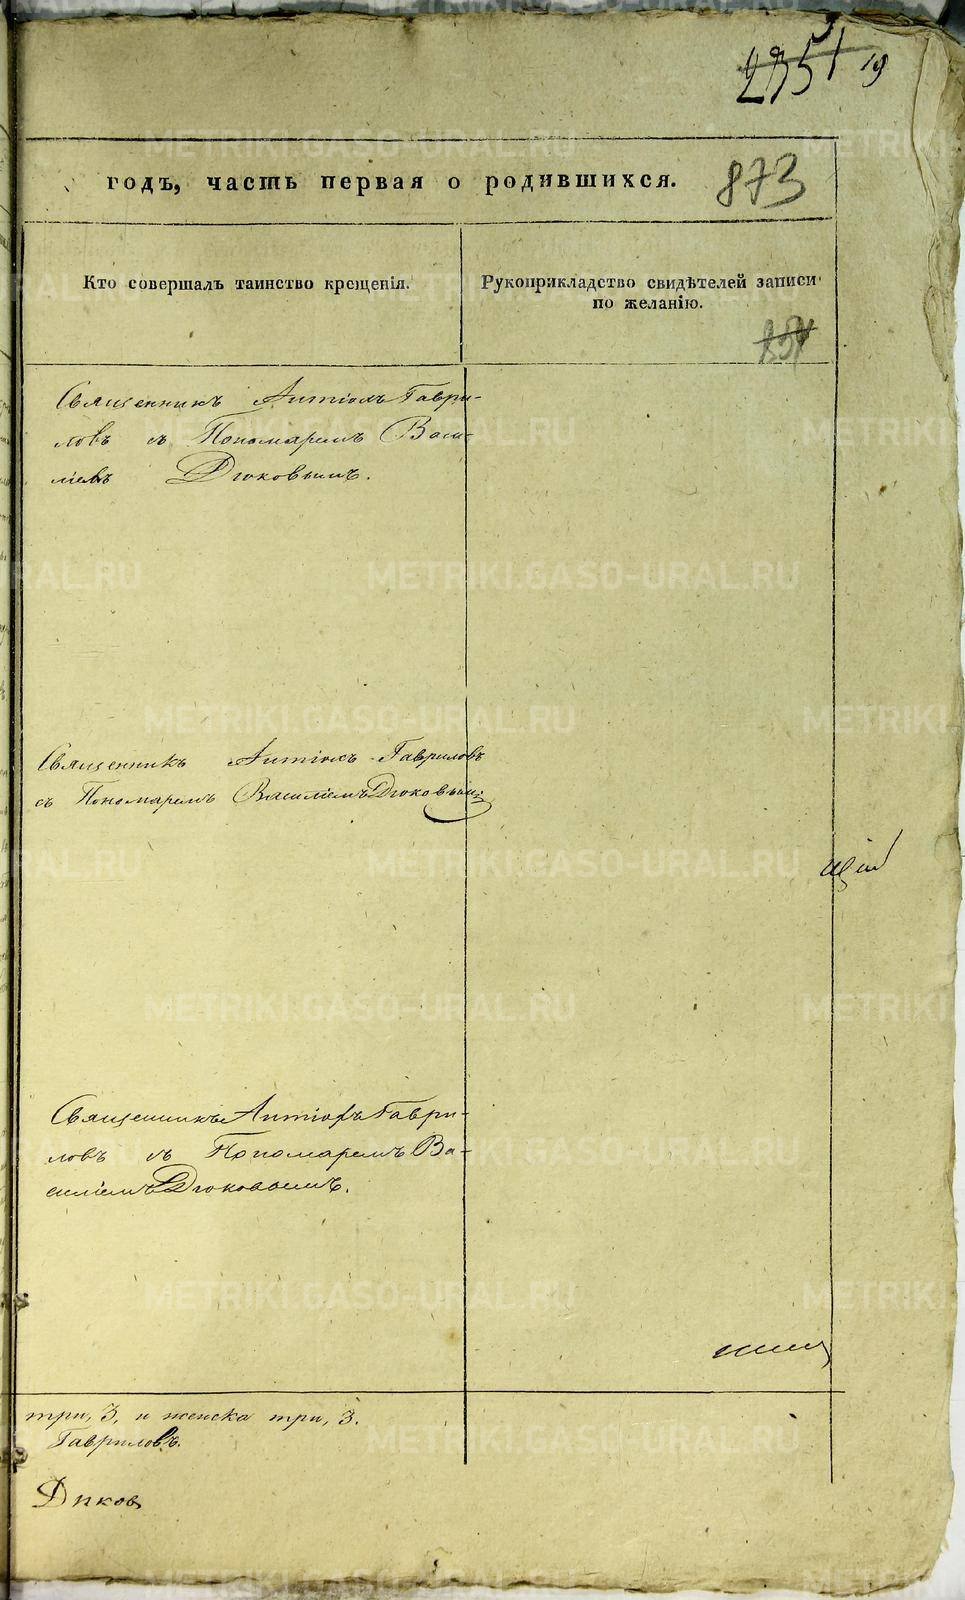 51 19
годъ, часть первая о родившихся. 873
Кто совершалъ таинство крещенія.
Рукоприкладство свидѣтелей записи
по желанію.
Священникъ Антіохъ Гаври-
ловъ съ Пономаремъ Васи-
ліемъ Дюковымъ.
Священникъ Антіохъ Гавриловъ
съ Пономаремъ Василіемъ Дюковым:
щій
Священникъ Антіохъ Гаври-
ловъ съ Пономаремъ Ва-
силіемъ Дюковымъ.
три, 3, и женска три, 3.
Гавриловъ.
METRIKI.GASO-URAL.RU